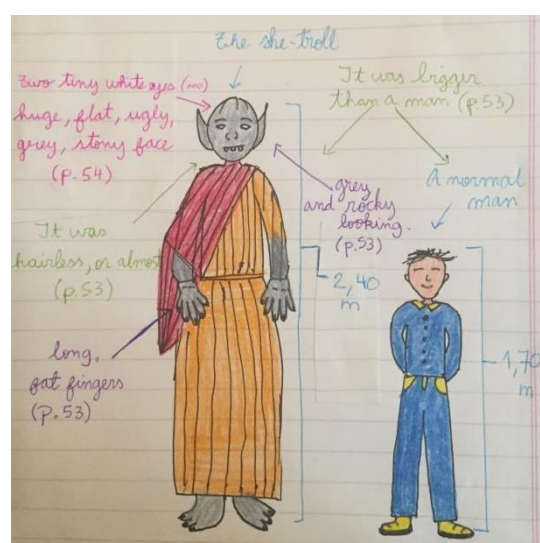 The she-troll
Two tiny white eyes (...)
huge, flat, ugly,
grey, stony face
(p. 54)
It was bigger
than a man (p.53)
grey
and rocky
looking.
(p.53)
A normal
man
It was
hairless, or almost
(p.53)
2,40
m
long,
fat fingers
(p.53)
1,70
m